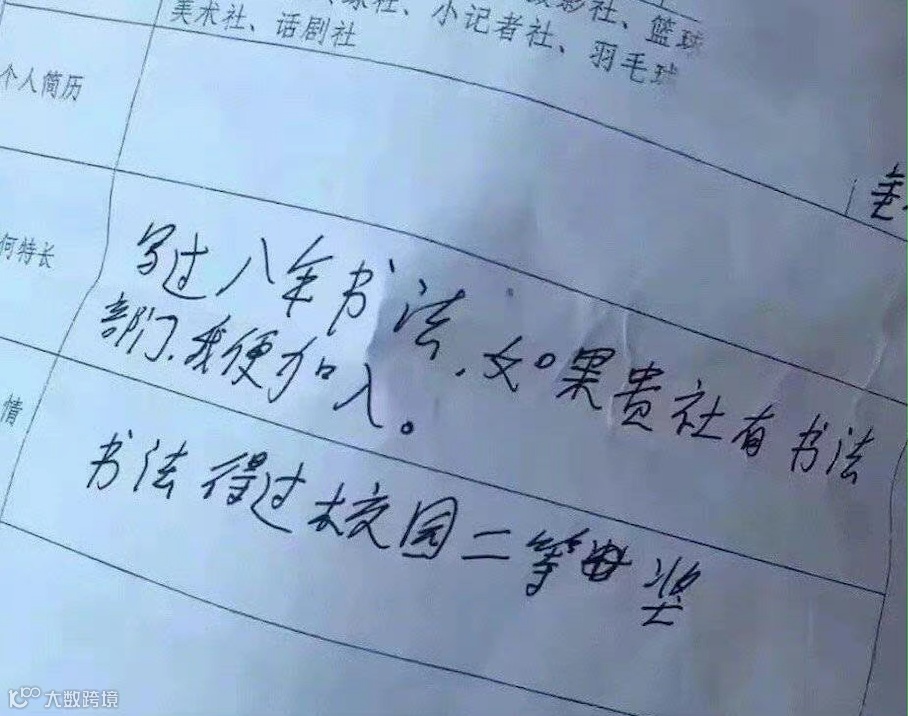 球社、小记者社、摄影社、篮球
美术社、话剧社 羽毛球
个人简历
何特长
写过八年书法，如果贵社有书法
部门，我便加入。
情
书法得过校园二等奖
大数跨境